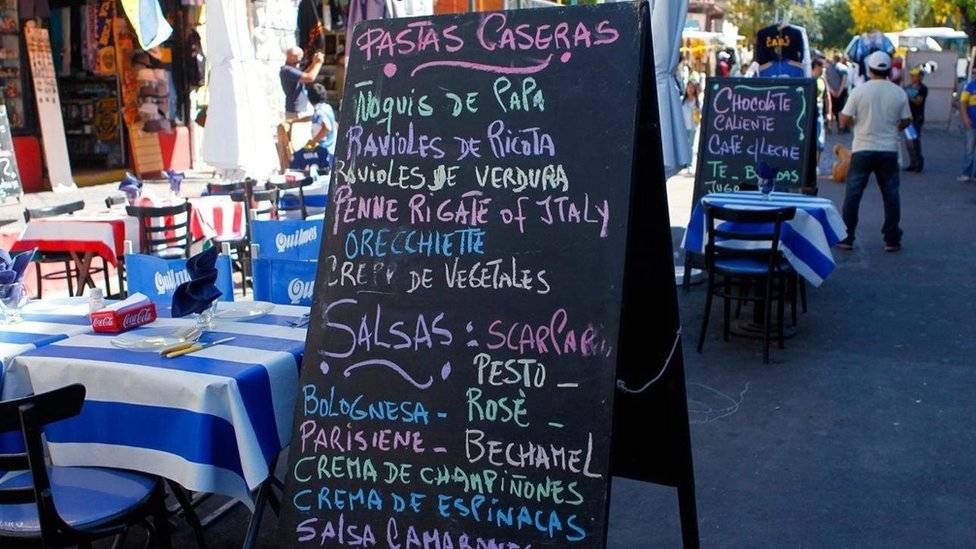 PASTAS CASERAS
ÑOQUIS DE PAPA
RAVIOLES DE RICOTA
RAVIOLES DE VERDURA
PENNE RIGATE OF ITALY
ORECCHIETTE
CREPP DE VEGETALES
SALSAS : SCARPARI
PESTO _
BOLOGNESA - ROSÈ _
PARISIENE - BECHAMEL
CREMA DE CHAMPIÑONES
CREMA DE ESPINACAS
SALSA CAMARONES
CHOCOLATE
CALIENTE
CAFÉ C/LECHE
TE - BEBIDAS
JUGO
Quilmes
Quilmes
Coca-Cola